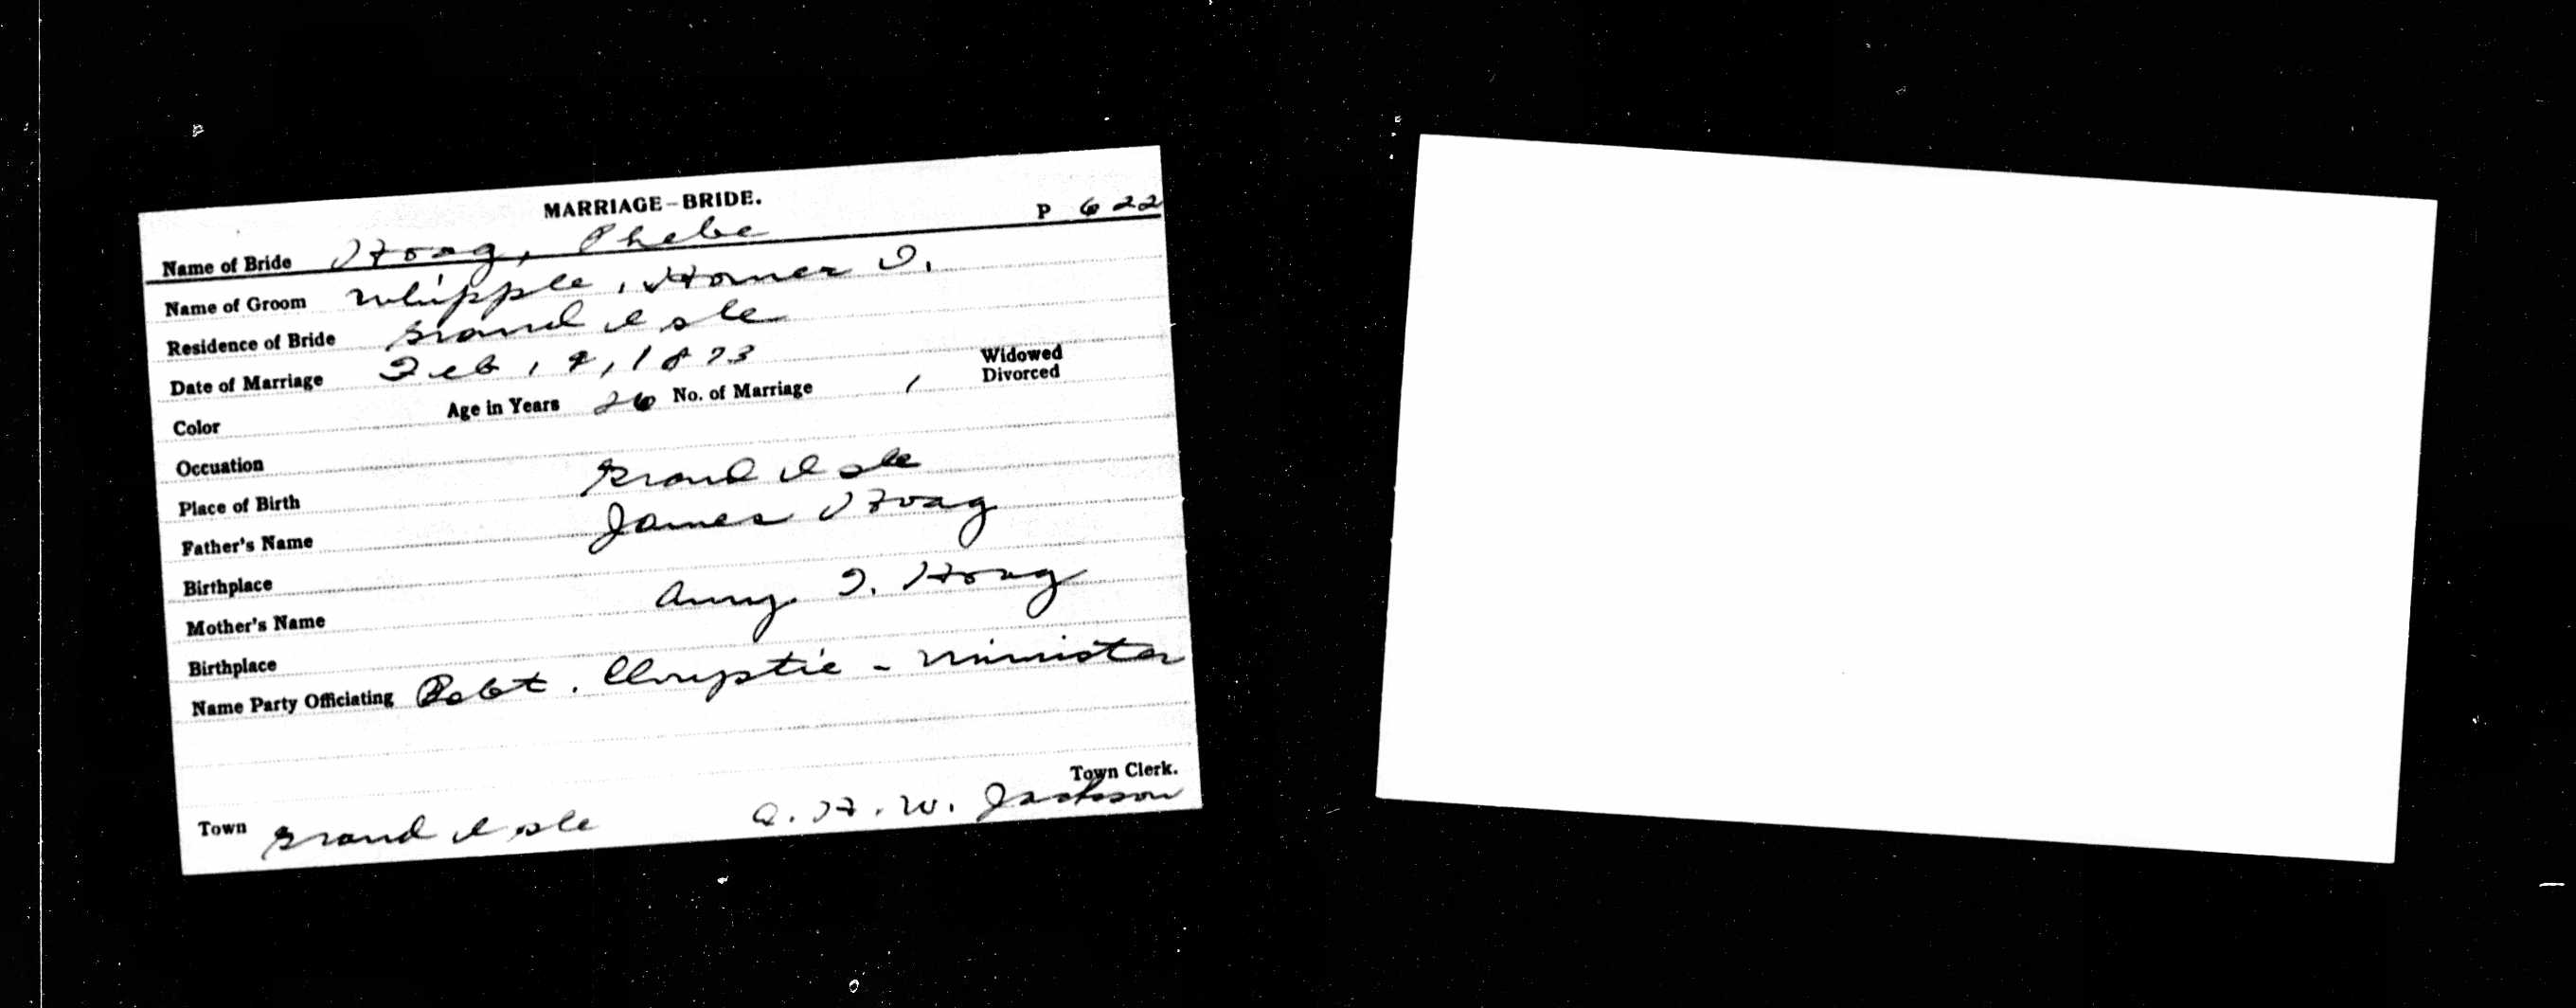 MARRIAGE-BRIDE.
P 622
Name of Bride Hoag, Phebe
Name of Groom Whipple, Homer
Residence of Bride Grand Isle
Date of Marriage Feb, 9, 1873
Color Age in Years 26 No. of Marriage 1 Widowed Divorced
Occuation
Place of Birth Grand Isle
Father's Name James Hoag
Birthplace
Mother's Name Hoag
Birthplace
Name Party Officiating Robt. Chryptie - Minister
Town Clerk.
Town Grand Isle A. H. W. Jackson